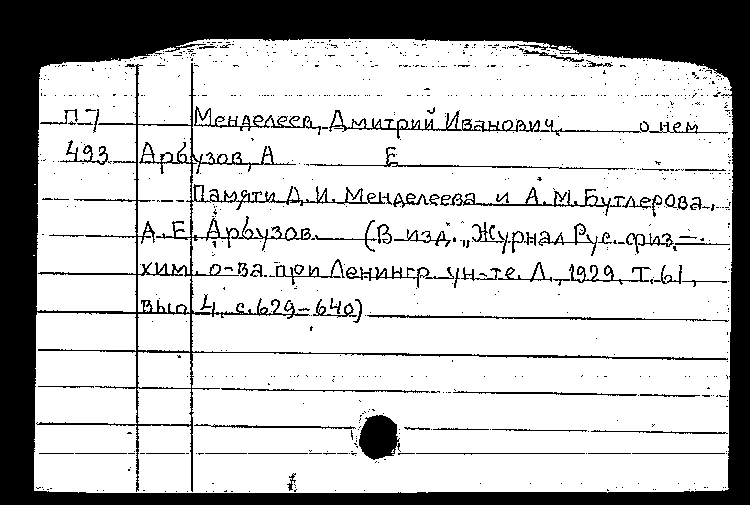 П7 Менделеев, Дмитрий Иванович, о нем
493 Арбузов, А Е
Памяти Д. И. Менделеева и А. М. Бутлерова.
А. Е. Арбузов. (В изд. „Журнал Рус. физ.—
хим. о-ва при Ленингр. ун-те. Л., 1929, Т. 61,
вып. 4, с. 629-640)